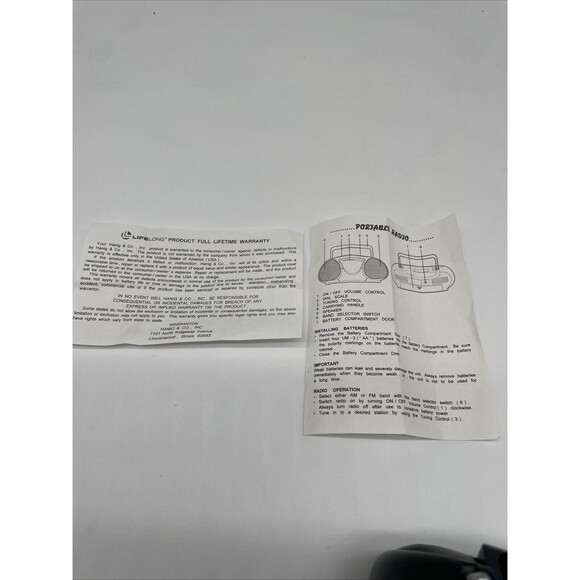 LIFELONG™ PRODUCT FULL LIFETIME WARRANTY
Your Hanig & Co., Inc. product is warranted to the consumer/owner against defects or malfunctions
by Hanig & Co., Inc. The product is not warranted by the company from whom it was purchased. This
warranty is effective only in the United States of America (USA).
If the product develops a defect or malfunction, Hanig & Co., Inc. will at its option and within a
reasonable time, repair or replace it with a product of equal value and similar appearance. The product must
be shipped to us at the consumer's/owner's expense. Repair or replacement will be made, and the product
will be returned to the consumer/owner in the USA at no charge.
This warranty covers all defects encountered in normal use of the product by the consumer/owner and
does not apply to battery life or loss or damage to the product due to abuse, alteration, mishandling,
accident, commercial use or if the product has been serviced or repaired by someone other than the
warrantor.
IN NO EVENT WILL HANIG & CO., INC. BE RESPONSIBLE FOR
CONSEQUENTIAL OR INCIDENTAL DAMAGES FOR BREACH OF ANY
EXPRESS OR IMPLIED WARRANTY FOR THIS PRODUCT.
Some states do not allow the exclusion or limitation of incidental or consequential damages, so the above
limitation or exclusion may not apply to you. This warranty gives you specific legal rights and you may also
have rights which vary from state to state.
WARRANTOR
HANIG & CO., INC.
7101 North Ridgeway Avenue
Lincolnwood, Illinois 60645
PORTABLE RADIO
1. ON / OFF VOLUME CONTROL
2. DIAL SCALE
3. TUNING CONTROL
4. CARRYING HANDLE
5. SPEAKER
6. BAND SELECTOR SWITCH
7. BATTERY COMPARTMENT DOOR
INSTALLING BATTERIES
- Remove the Battery Compartment
- Insert four UM-3 ("AA") batteries Compartment Be sure
the polarity markings on the batteries match the markings in the battery
cabinet.
- Close the Battery Compartment Door.
IMPORTANT
Weak batteries can leak and severely damage the unit. Always remove batteries
immediately when they become weak the unit is not to be used for
a long time.
RADIO OPERATION
- Select either AM or FM band with the band selector switch (6).
- Switch radio on by turning ON / OFF Volume Control (1) clockwise.
Always turn radio off after use to conserve battery power.
- Tune in to a desired station by using the Tuning Control (3).